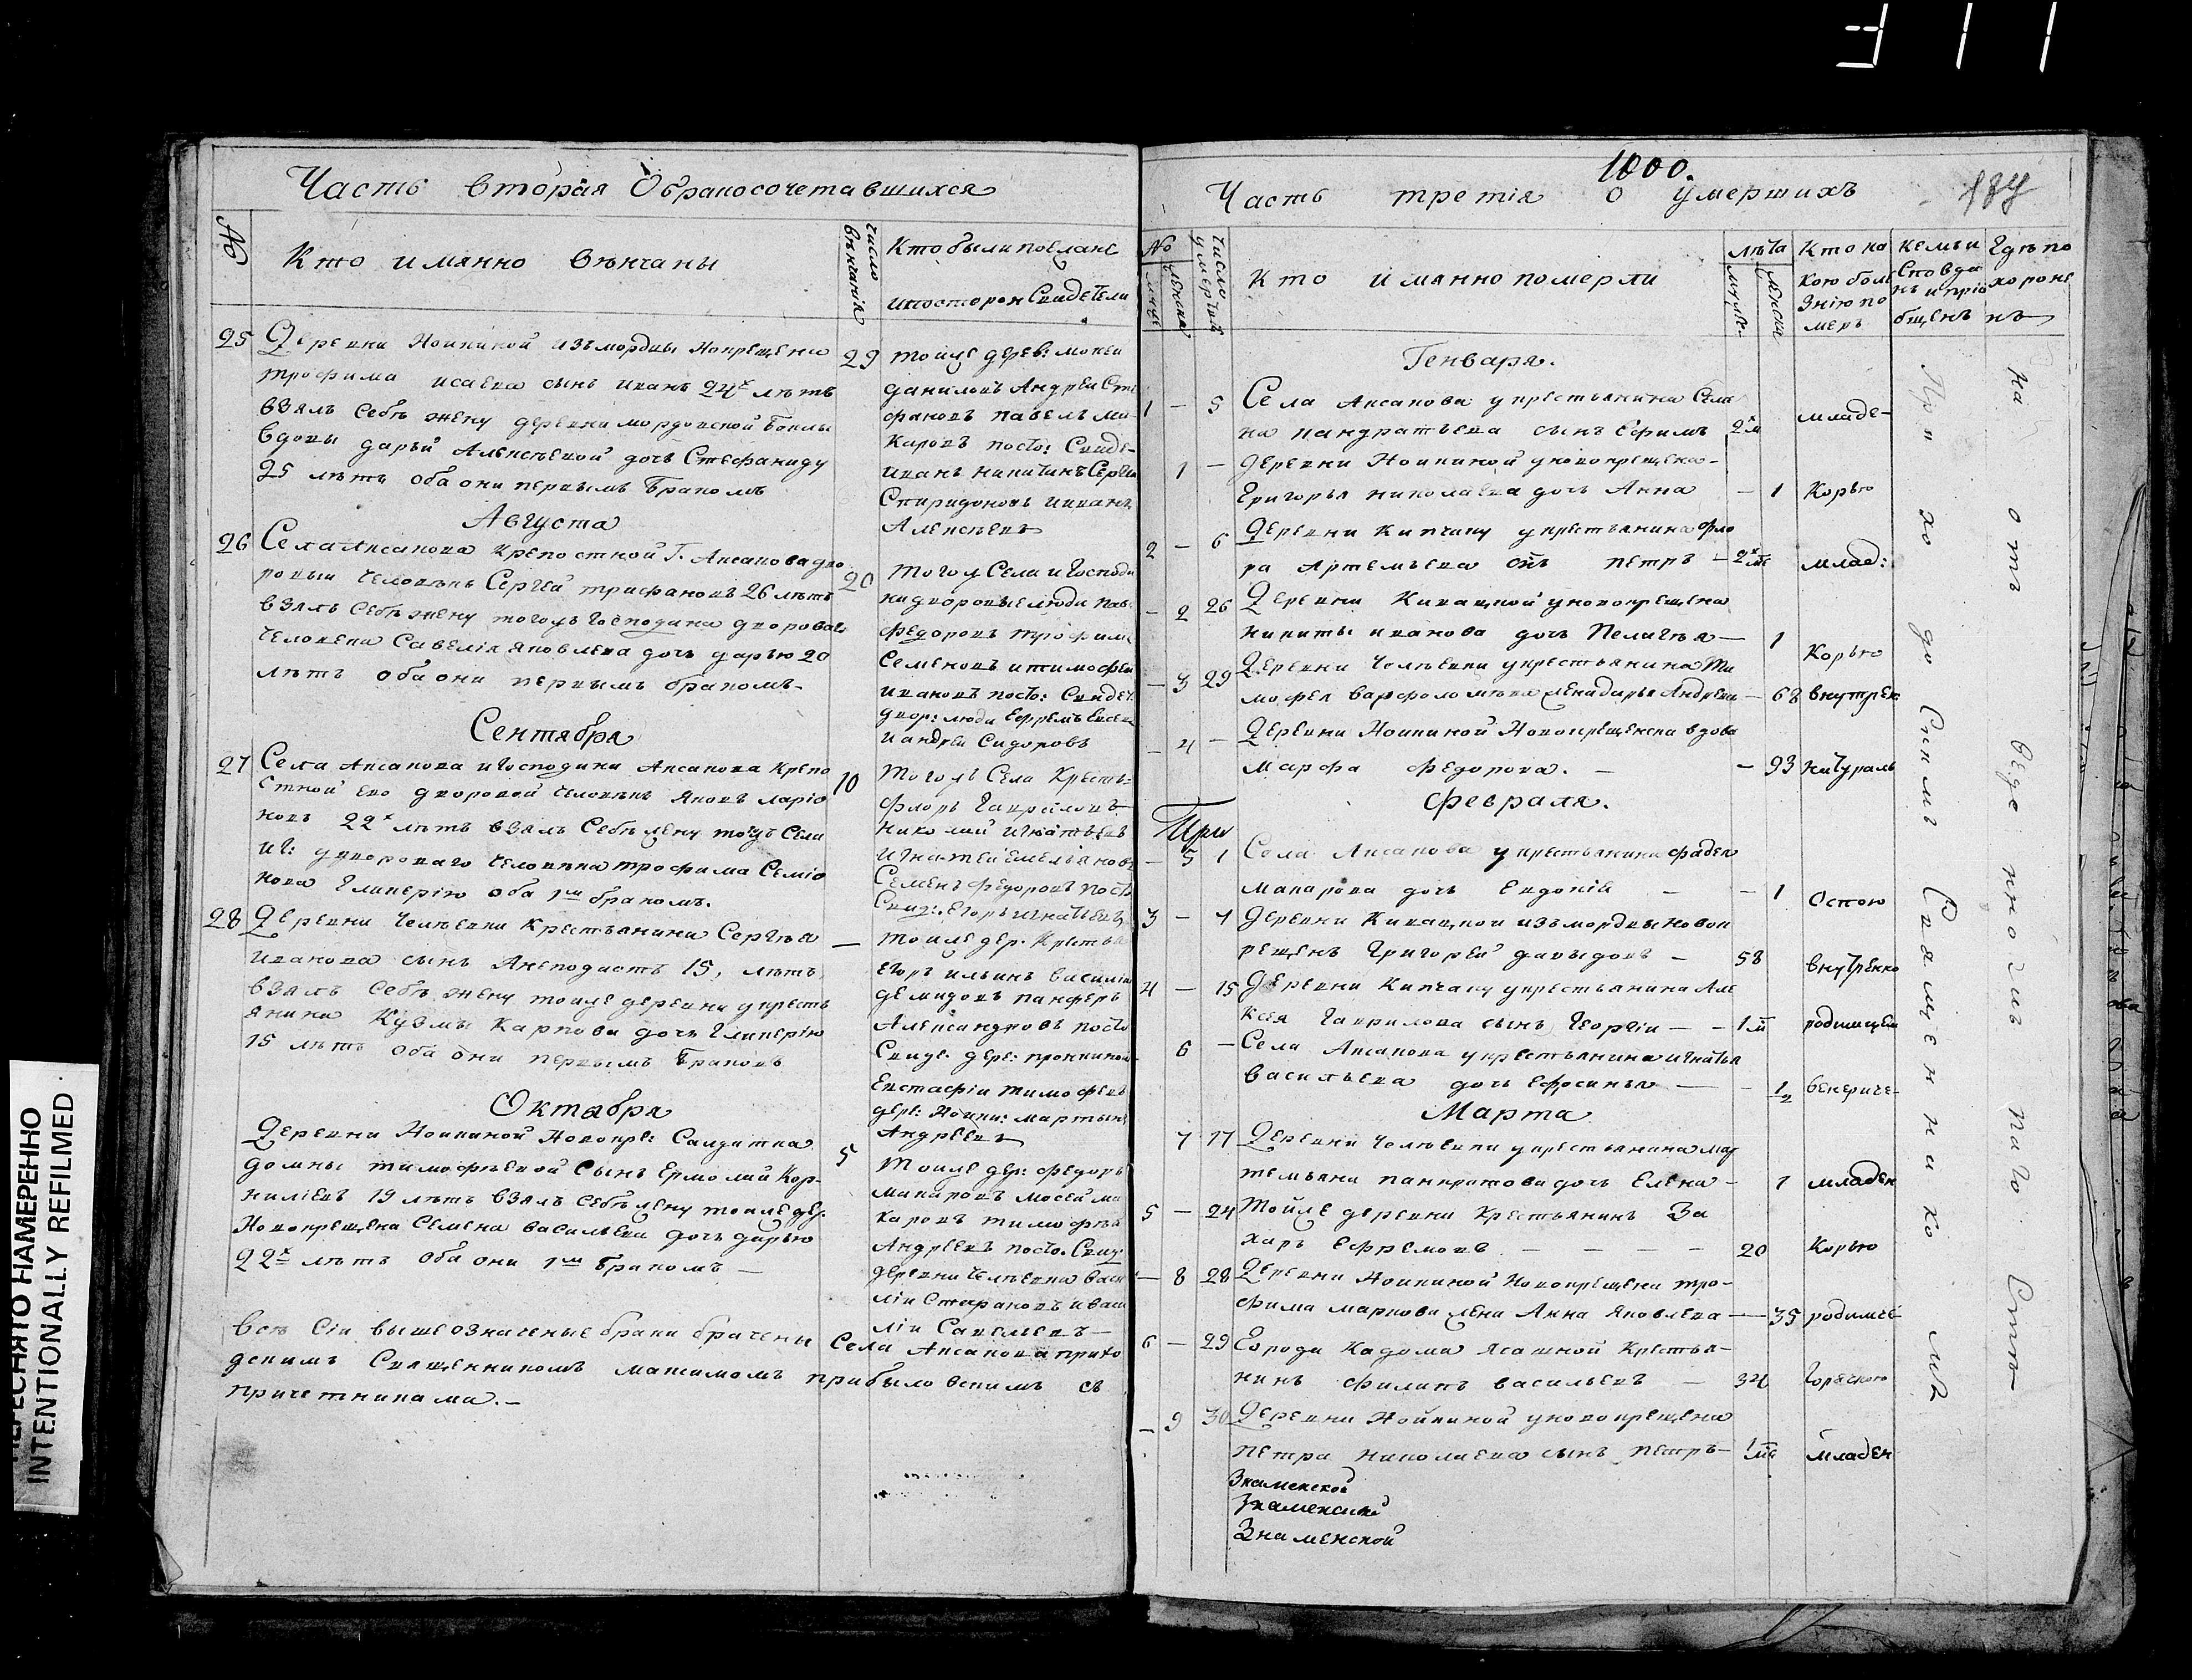 ПЕРЕСНЯТО НАМЕРЕННО
INTENTIONALLY REFILMED
Часть вторая О бракосочетавшихся
№
Кто имянно венчаны
число венчания
Кто были поезжане
и посторон Свидетели
25
Деревни Ноинкиной изъ мордвы Новокрещена
трофима исаева сынъ иванъ 24х летъ
взялъ себе жену деревни мордовской
вдовы дарьи Алексеевой дочь Стефаниду
25 летъ оба они первымъ бракомъ
29
тоижде дерев: мокеи
даниловъ Андреи Сте
фановъ павелъ ма
каровъ посто: Свиде-
иванъ никитинъ Сергеи
Спиридоновъ и иванъ
Алексеевъ
Августа
26
Села Аксакова крепостной Г. Аксакова дво
ровыи человекъ Сергей трифановъ 26 летъ
взялъ себе жену тогожъ Господина дворова
человека Савелія яковлева дочь дарью 20
летъ оба они первымъ бракомъ-
20
тогож Села и Господи
на дворовые люди пав
федоровъ трофимъ
Семеновъ и тимофеи
ивановъ посто: Свидет:
двор: люди Ефремъ
и андреи Сидоровъ
Сентября
27
Села Аксакова и Господина Аксакова крепо
стной ево дворовой человекъ яковъ ларіо
новъ 22х летъ взялъ себе жену тогожъ Села
и Г: двороваго человека трофима Семіо
нова Гликерію оба 1м бракомъ.
10
тогожъ Села Кресть-
флоръ Гавриловъ
николай игнатьевъ
игнатеи емельяновъ
Семенъ федоровъ посто
Свид: Егоръ игнатьевъ
28
Деревни Челпевки Крестьянина Сергея
иванова сынъ Анеподистъ 15, летъ
взялъ себе жену тоижде деревни у кресть
янина Кузмы Карпова дочь Гликерію
15 летъ оба они первымъ бракомъ
тоижде дер. Крестья
Егоръ ильинъ василіи
демидовъ панферъ
Александровъ посто
Свиде. дере: пронкиной
Евстафіи тимофеевъ
дере: Ноинк: мартынъ
Андреевъ
Октября
Деревни Ноинкиной Новокре: Салдатка
домны тимофеевой сынъ Ермолай Кор-
ниліевъ 19 летъ взялъ себе жену тоижде дер.
Новокрещена Семена васильева дочь дарью
22х летъ оба они 1м бракомъ -
5
тоижде дер: федоръ
макаровъ мосей ма
каровъ тимофеи
Андреевъ посто. Свид:
деревни Челпевка васи
ліи Степановъ и васи
ліи Савельевъ
Все сіи вышеозначеные браки брачены Села Аксакова прихо
дскимъ Священникомъ максимомъ прибыловскимъ съ
причетниками.-
1800.
Часть третія о умершихъ
184
№
мужс
женска
число умертія
Кто имянно померли
лета
мужс:
женска
Кто какою болезнію померъ
Кемъ исповеданъ и пріобщенъ
Где похороненъ
Генваря.
1 - 5
Села Аксакова у крестьянина Семи
на пандратьева сынъ Ефимъ
2м
младе-
1 -
деревни Ноинкиной у новокрещена-
Григорья николаева дочь Анна - 1 Корью
2 - 6
Деревни Кипчаку у крестьянина фло
ра Артемьева снъ петръ - 2ме млад:
- 2 26
Деревни Кивацкой у новокрещена
никиты иванова дочь Пелагея - 1 Корью
- 3 29
Деревни Челпевки у крестьянина Ти
мофея варфоломеева жена дарья Андреева - 68 внутрен
- 4 -
Деревни Ноинкиной Новокрещенска вдова
марфа федорова. - - 93 натураль
Февраля.
- 5 1
Села Аксакова у крестьянина фадея
макарова дочь Евдокія - - 1 Оспою
3 - 4
Деревни Кивацкой изъ мордвы новок
рещенъ Григорей давыдовъ - 58 внутренно
4 - 15
Деревни Кипчаку у крестьянина Але
ксея Гаврилова сынъ Георгіи - - 1м родимцем
6 -
Села Аксакова у крестьянина игнатья
васильева дочь Ефросинья - 1/2 венериче-
Марта
7 17
Деревни Челпевки у крестьянина мар
темьяна панкратова дочь Елена - 1 младен
5 - 24
Тойжде деревни Крестьянинъ За
харъ Ефремовъ - - - - 20 Корью
- 8 28
Деревни Ноинкиной Новокрещена тро-
фима маркова жена Анна яковлева - 35 родимче
6 - 29
Города Кадома ясашной Крестья-
нинъ филипъ васильевъ - 34 Горячкою
- 9 30
Деревни Нойкиной у новокрещена
петра николаева сынъ петръ- 1ме младен
Знаменской
Знаменской
Знаменской
Приходскимъ Священникомъ
На отъ